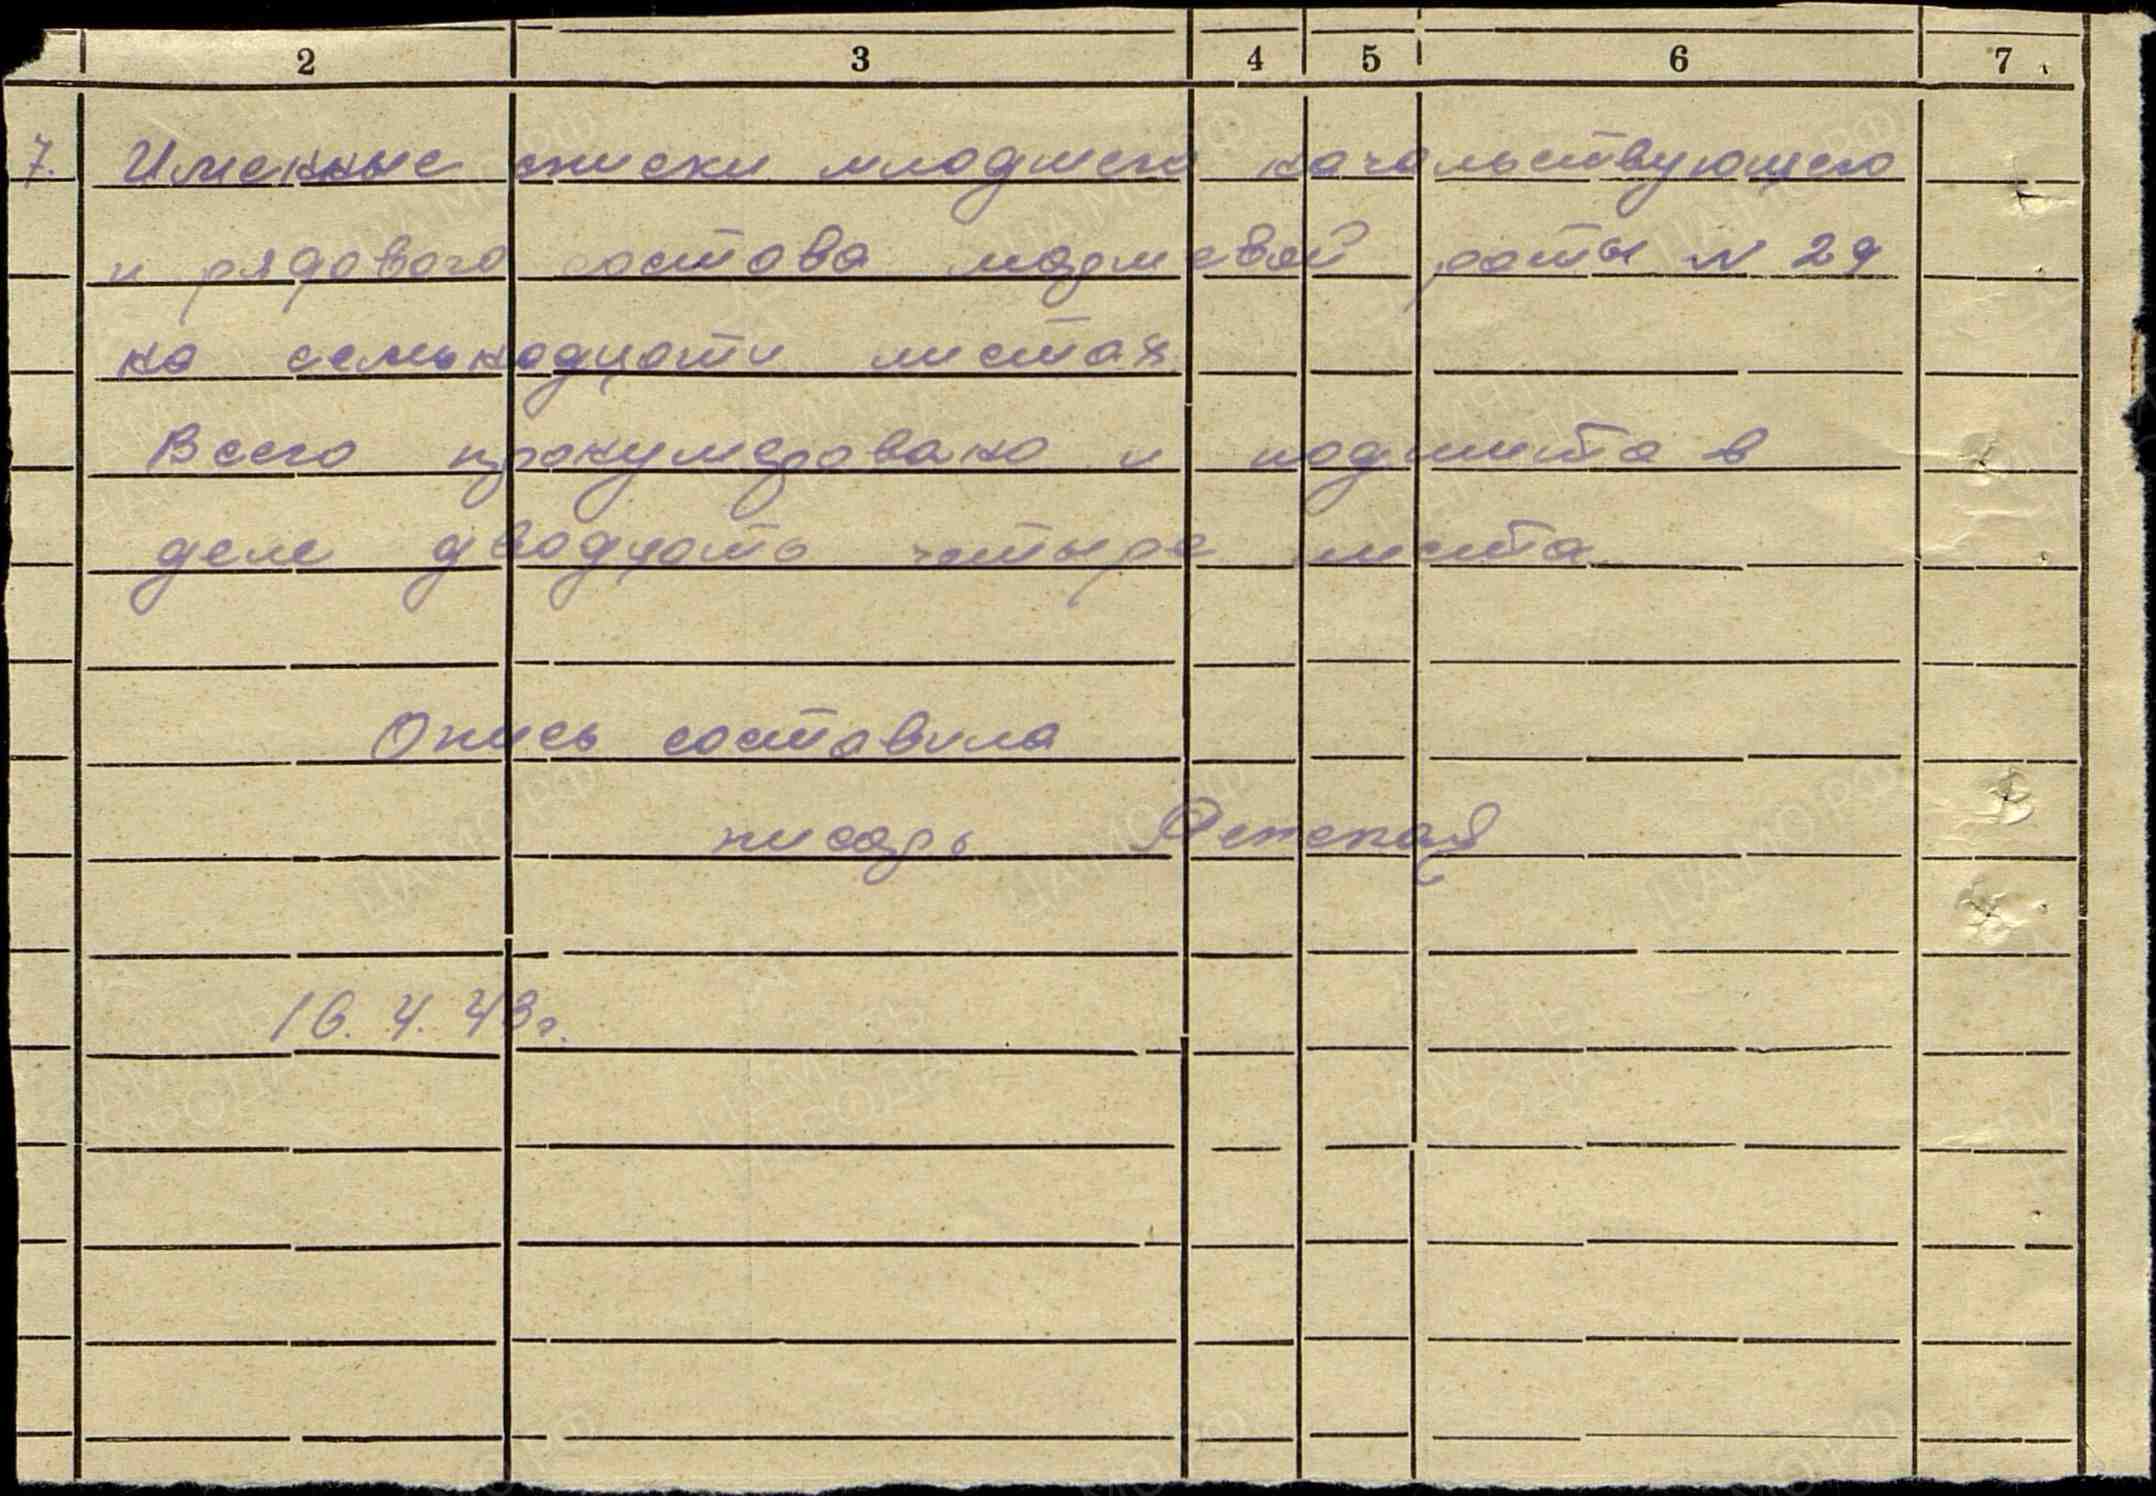 2 3 4 5 6 7
7. Именные списки младшего начальствующего
и рядового состава маршевой роты N 29
на семьнадцати листах
Всего пронумеровано и подшито в
деле двадцать четыре листа
Опись составила
писарь
16. 4. 43 г.